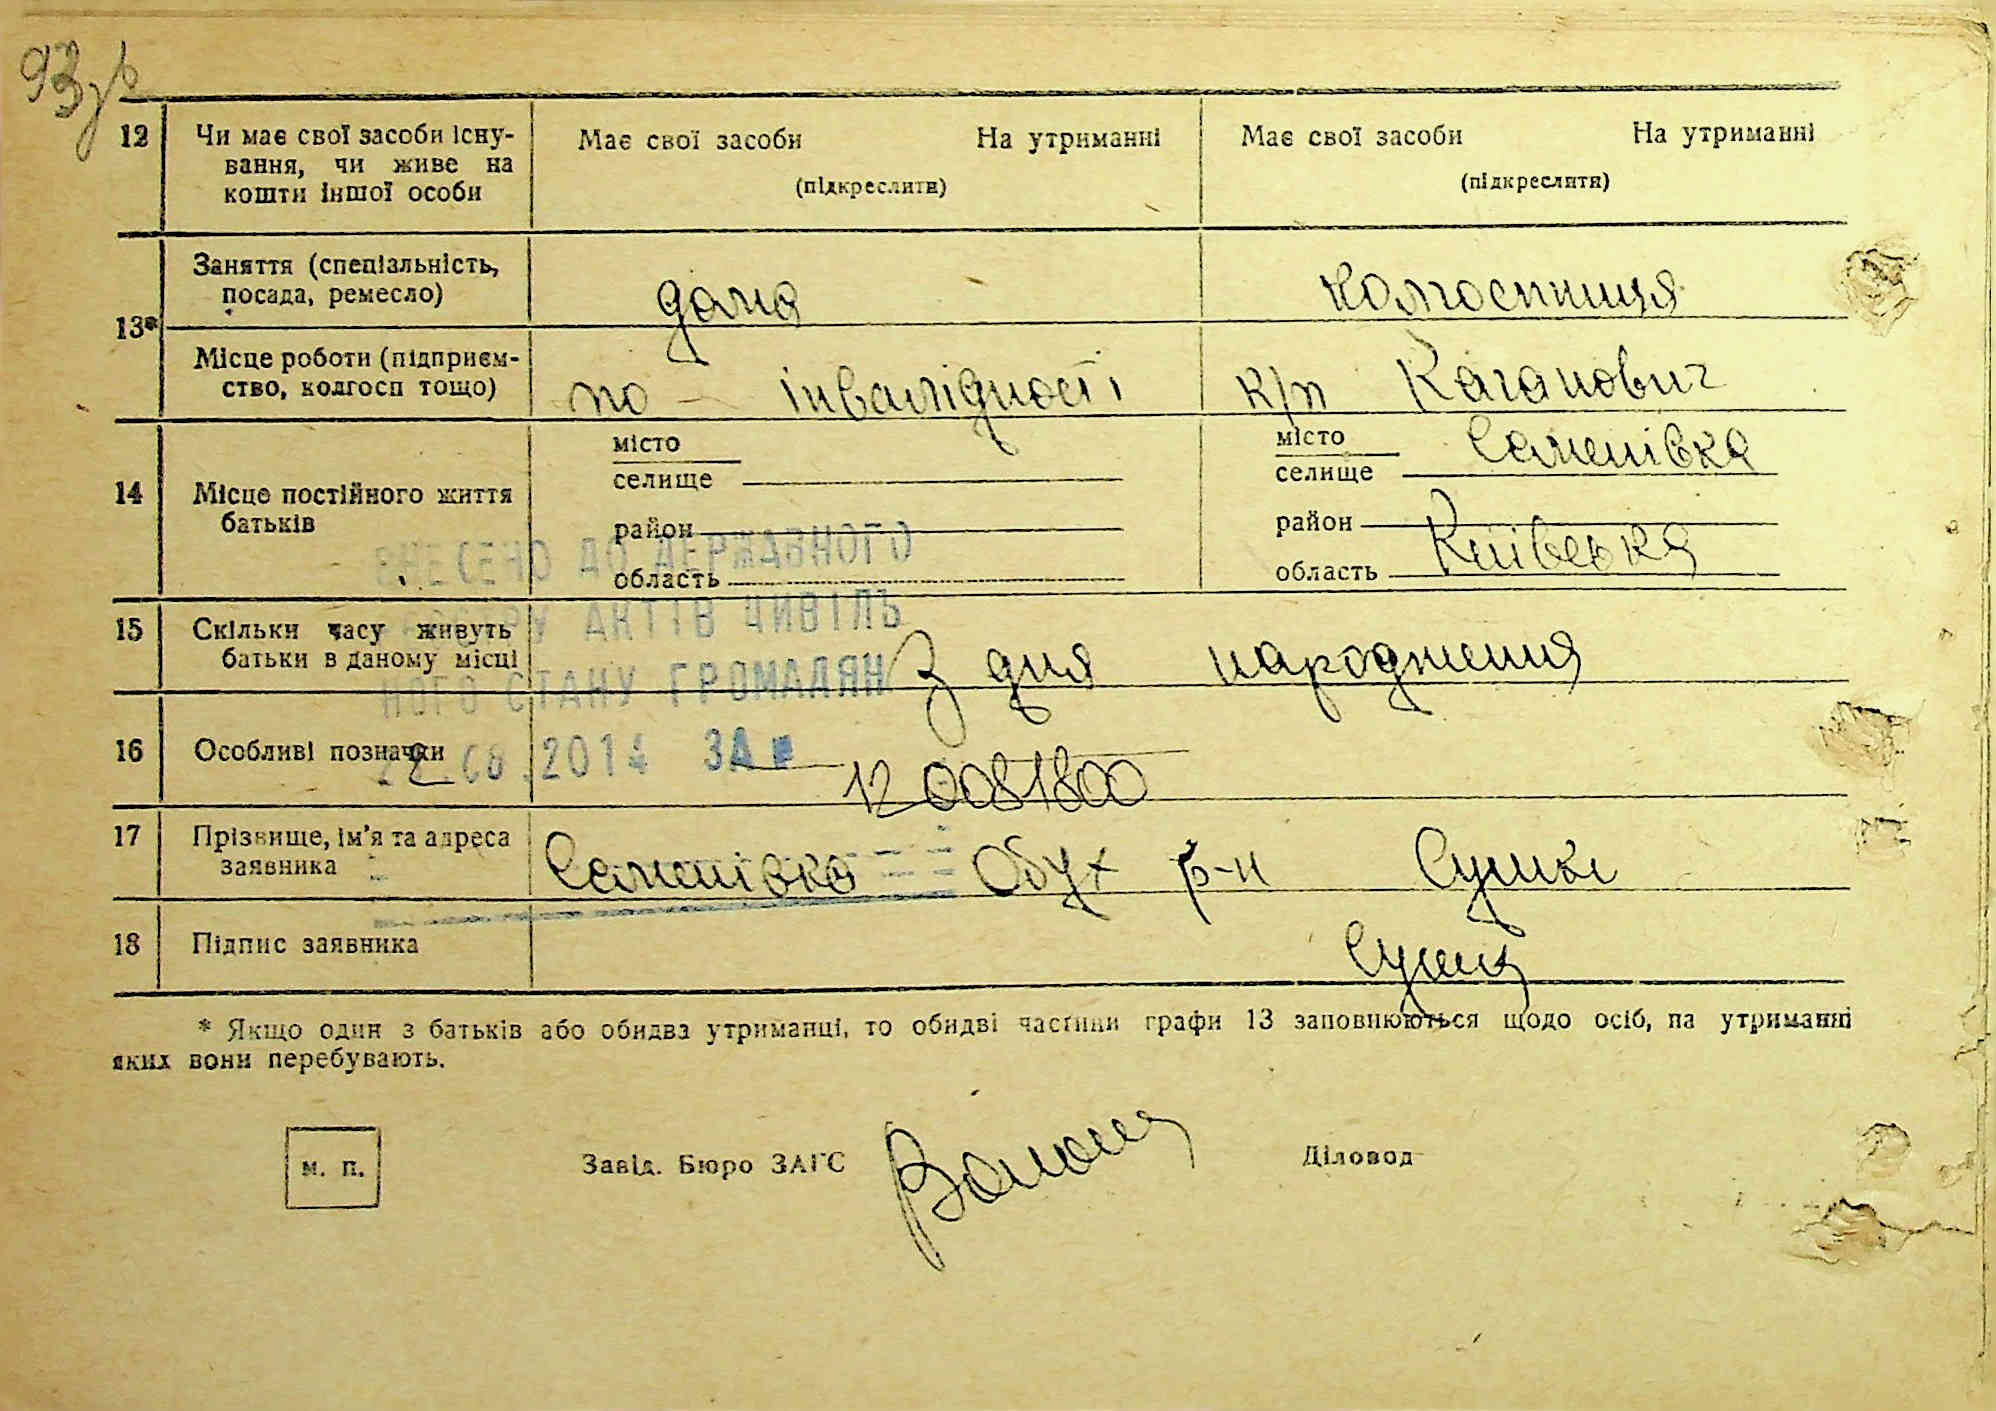 12 Чи має свої засоби існу-
вання, чи живе на
кошти іншої особи
Має свої засоби На утриманні
(підкреслити)
Має свої засоби На утриманні
(підкреслити)
13*
Заняття (спеціальність,
посада, ремесло)
дома
колгоспниця
Місце роботи (підприєм-
ство, колгосп тощо)
по - інвалідності
к/п Каганович
14 Місце постійного життя
батьків
місто
селище
район
область
місто
селище Семенівка
район
область Київська
15 Скільки часу живуть
батьки в даному місці
З дня народження
ВНЕСЕНО ДО ДЕРЖАВНОГО
РЕЄСТРУ АКТІВ ЦИВІЛЬ
НОГО СТАНУ ГРОМАДЯН
16 Особливі позначки
22.08.2014 ЗА №
12 0081800
17 Прізвище, ім'я та адреса
заявника
Семенівка Обух р-н
18 Підпис заявника
* Якщо один з батьків або обидва утриманці, то обидві частини графи 13 заповнюються щодо осіб, на утриманні
яких вони перебувають.
м. п.
Завід. Бюро ЗАГС
Діловод